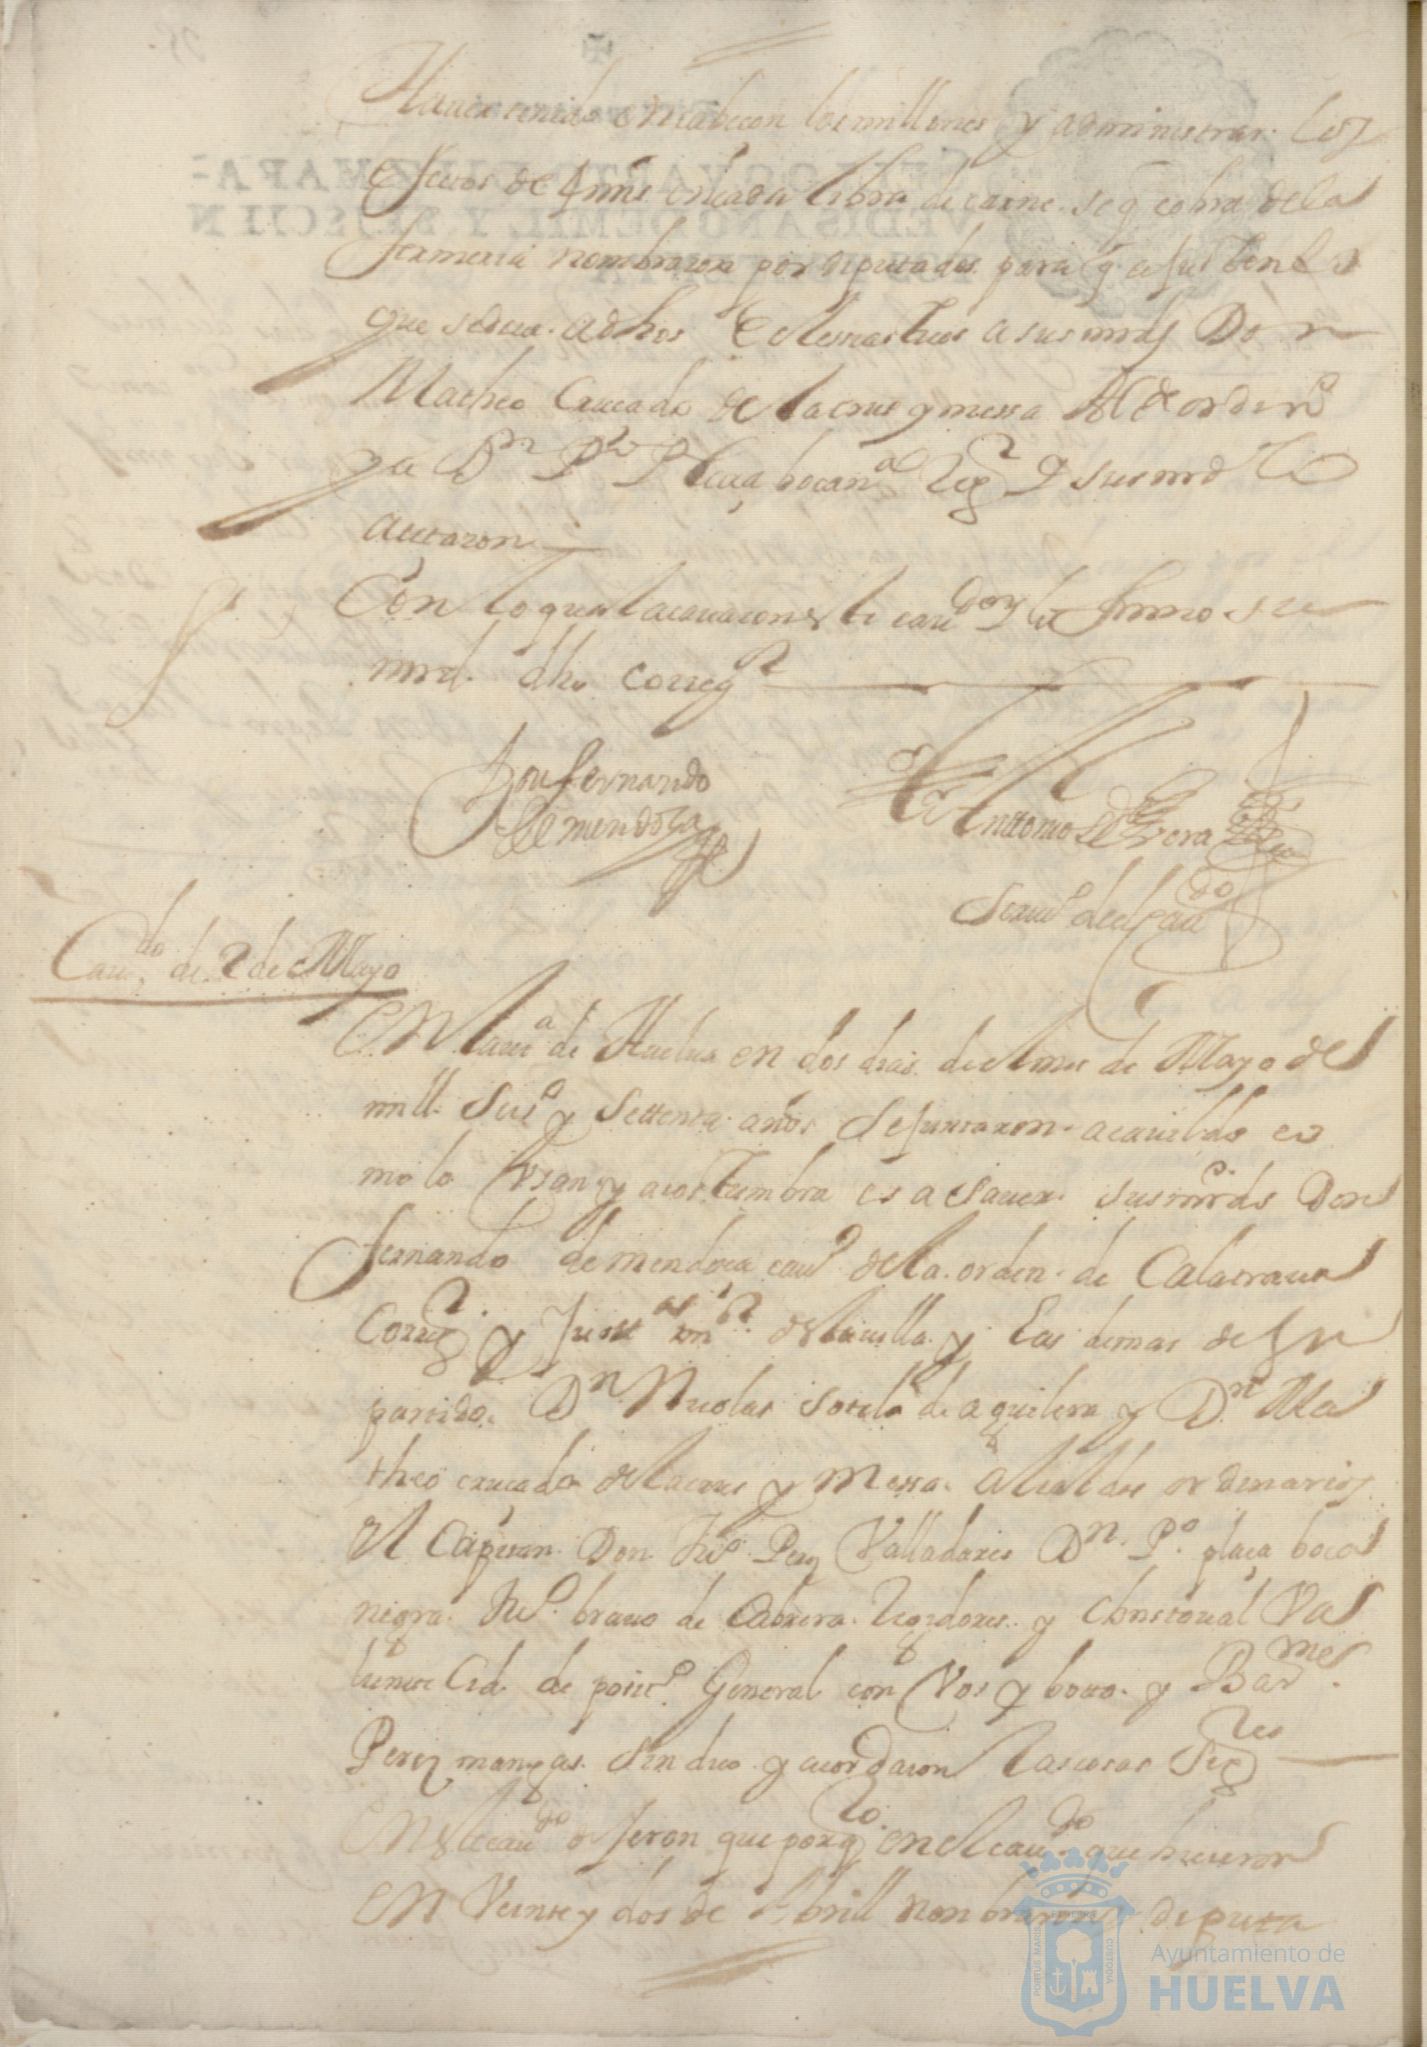 Hauer tenido en cabeçon los millones y administrar. los
efectos de 4 mrs en cada libra de carne. se q cobra de la
fermeria nombraron por diputados para q ajusten lo
que se deua. a dhos Eclesiasticos a sus mrds Don
Matheo Crucado de la crus y messa Alcde ordin.º
y a Dn P.º Plaça bocan.ª Regr q sus mrd lo
acetaron
Con lo qual acauaron este caudo y lo firmo su
mrd. dho corregr
Don fernando
de mendoça
Antonio de Vora
Scriuº del Caudo
Caudo de 2 de Mayo
EN la uiª de Huelua en dos dias. del mes de Mayo de
mill. Seisº y Settenta. años se juntaron. a cauildo co
mo lo Vsan y acostumbra es a sauer. sus mrds Don
fernando de mendoça cauº de la. orden. de Calatraua
Corregr. y Justª mr de la uilla. y las demas de su
partido. Dn Nicolas sotelo de aguilera y Dn Ma
theo crucado de la crus y Messa. alcaldes ordinarios
el Capitan. Don. Juº. Perez Valladares Dn. Pº. plaça boca
negra. Juº. brauo de Cabrera. Regidores. y Christoual Va
liente Cid. de positº. General con Vos y boto. y Barmes.
Perez mangas. sindico y acordaron las cosas Sigtes
EN este caudo dixeron que por qto. en el caudo que hicieron
en Veinte y dos de Abrill nombraron diputa
Ayuntamiento de
HUELVA